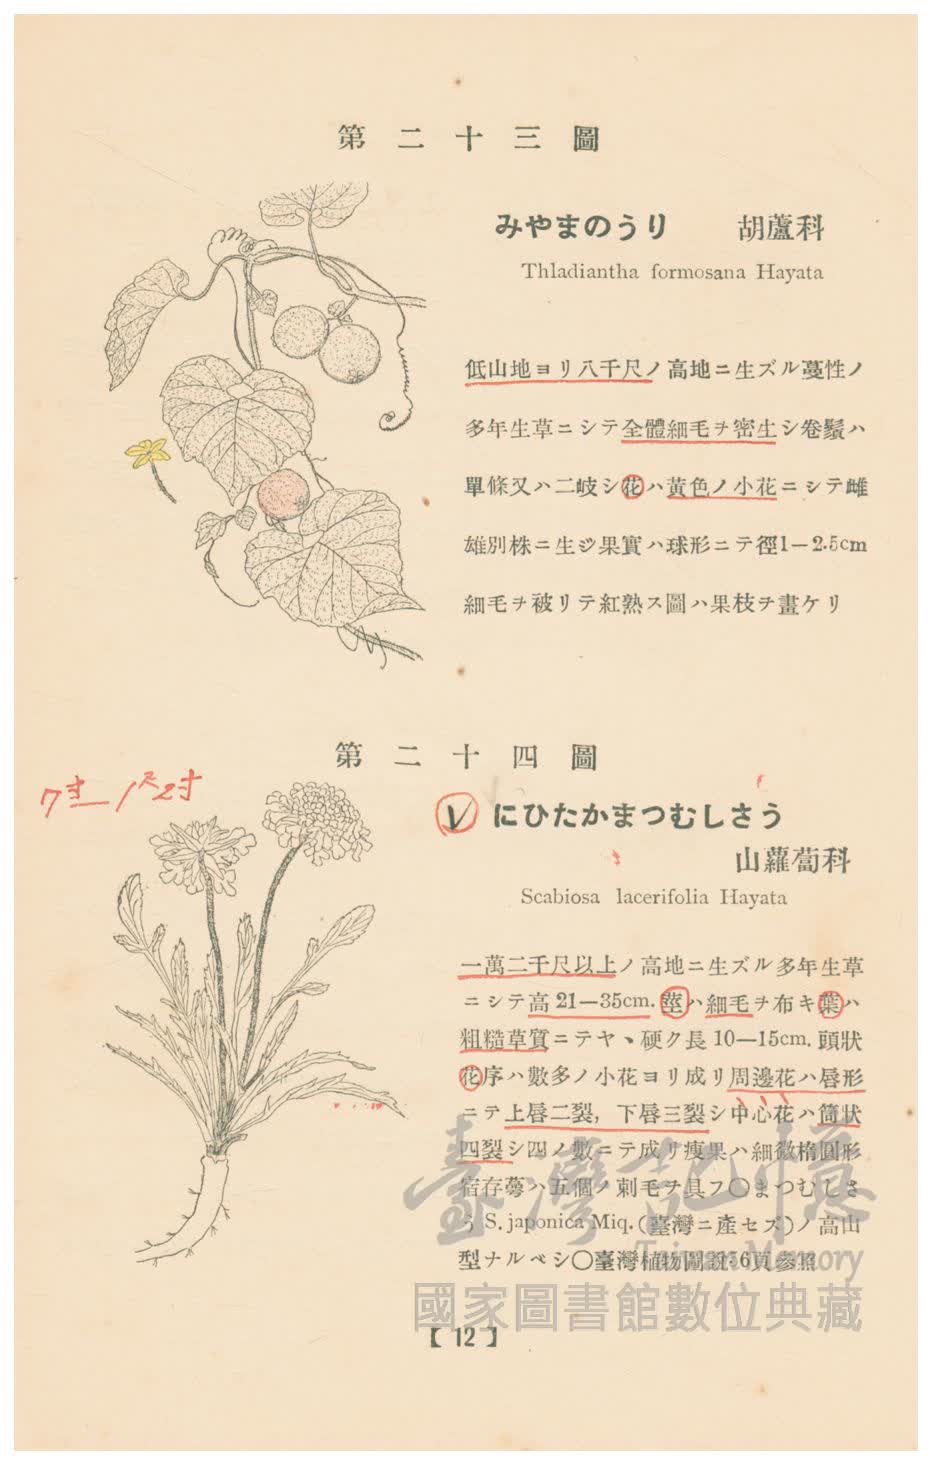 第二十三圖
みやまのうり 胡蘆科
Thladiantha formosana Hayata
低山地ヨリ八千尺ノ高地ニ生ズル蔓性ノ
多年生草ニシテ全體細毛ヲ密生シ卷鬚ハ
單條又ハ二岐シ花ハ黃色ノ小花ニシテ雌
雄別株ニ生ジ果實ハ球形ニテ徑1－2.5cm
細毛ヲ被リテ紅熟ス圖ハ果枝ヲ畫ケリ
第二十四圖
7寸—1尺2寸
V にひたかまつむしさう
山蘿蔔科
Scabiosa lacerifolia Hayata
一萬二千尺以上ノ高地ニ生ズル多年生草
ニシテ高21—35cm. 莖ハ細毛ヲ布キ葉ハ
粗糙草質ニテヤヽ硬ク長10—15cm. 頭狀
花序ハ數多ノ小花ヨリ成リ周邊花ハ唇形
ニテ上唇二裂, 下唇三裂シ中心花ハ筒狀
四裂シ四ノ數ニテ成リ瘦果ハ細微橢圓形
宿存萼ハ五個ノ刺毛ヲ具フ○まつむしさ
う S. japonica Miq. (臺灣ニ產セズ)ノ高山
型ナルベシ○臺灣植物圖說56頁參照
臺灣記憶
Taiwan Memory
國家圖書館數位典藏
【12】